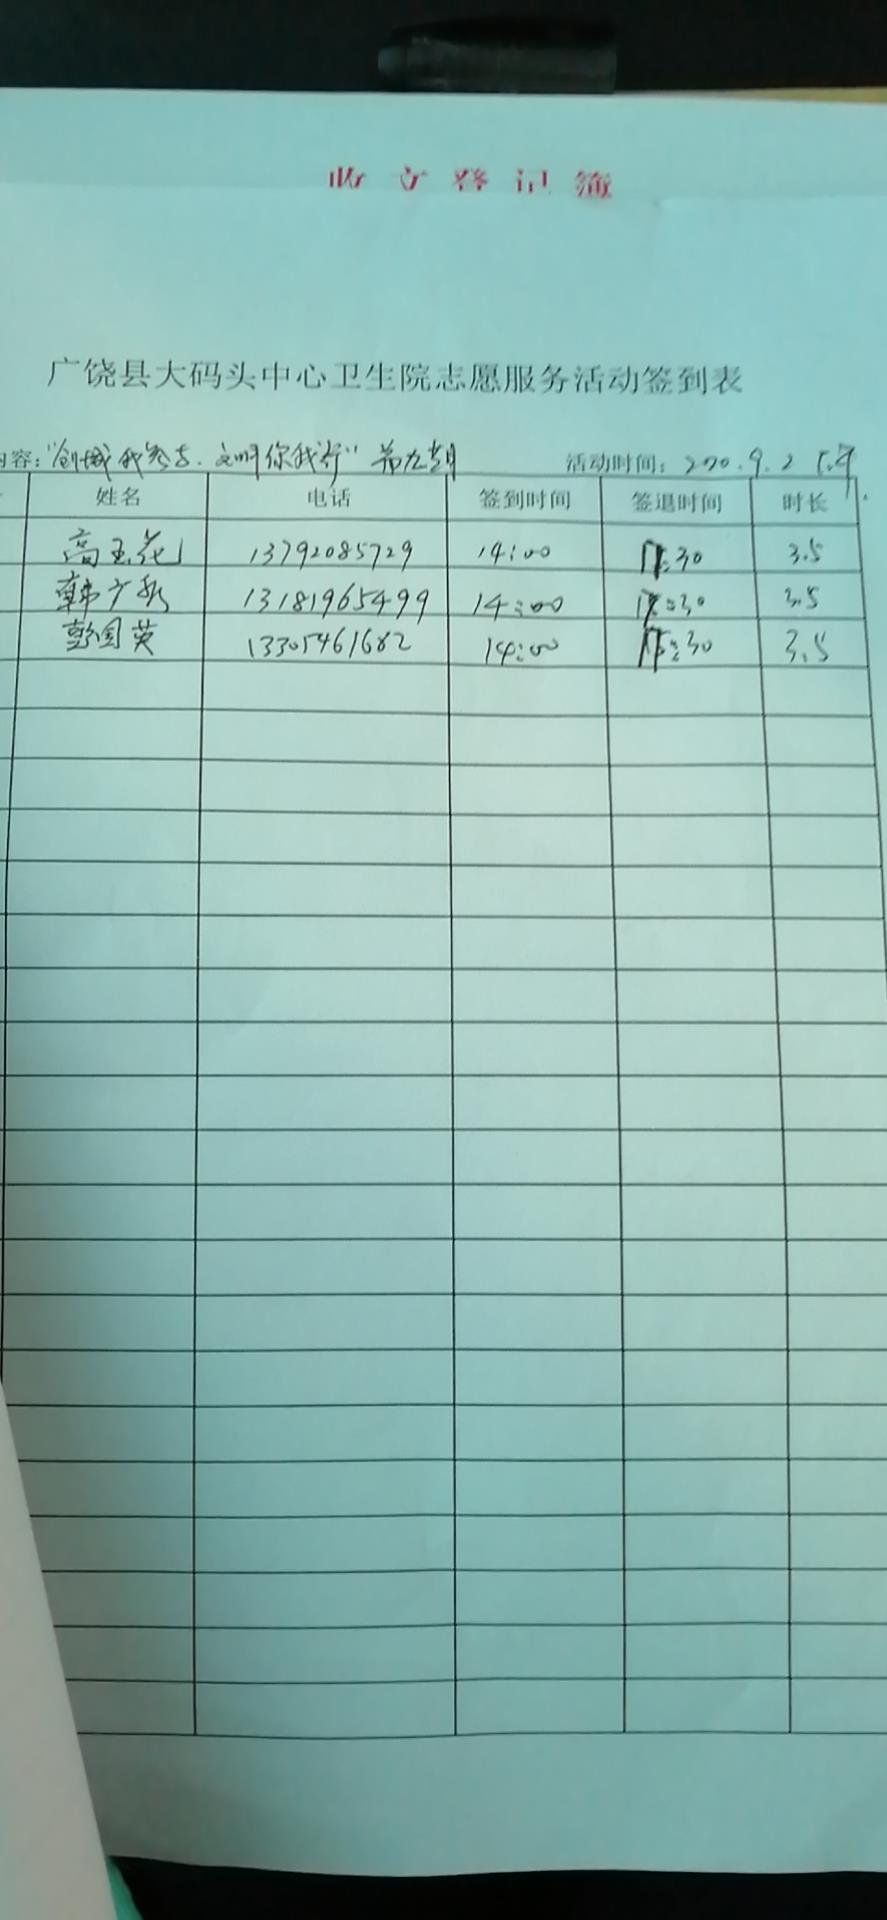 收文登记簿
广饶县大码头中心卫生院志愿服务活动签到表
内容：“创城我参与.文明你我行” 第九期 活动时间：2020.9.2 下午
姓名 电话 签到时间 签退时间 时长
高玉花 13792085729 14:00 17:30 3.5
韩 13181965499 14:00 17:30 3.5
彭国英 13305461682 14:00 17:30 3.5